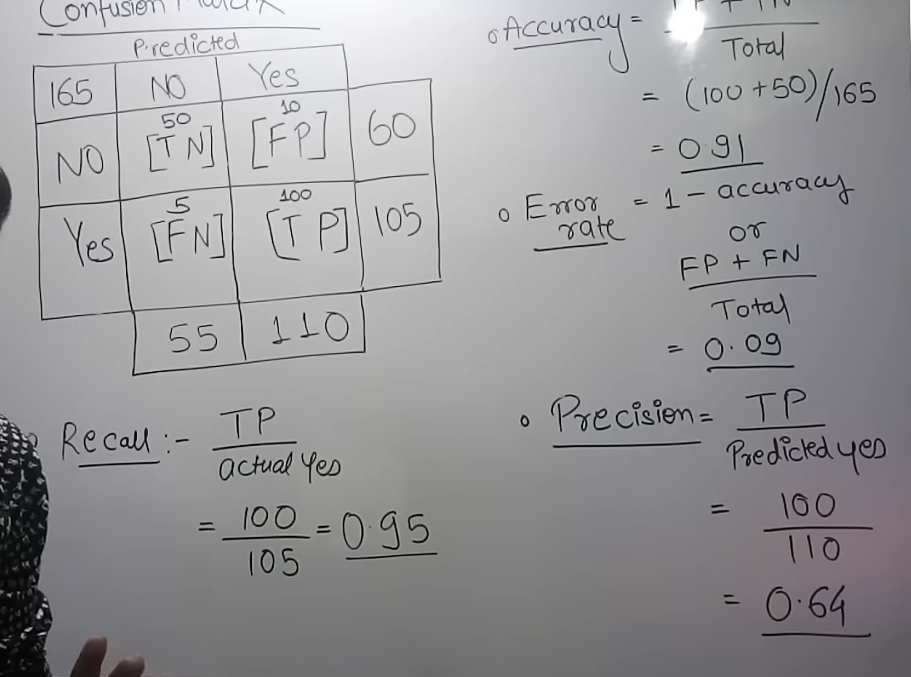 Confusion Matrix
Predicted
165 NO Yes
50 10
NO [TN] [FP] 60
5 100
Yes [FN] [TP] 105
55 110
Recall :- TP
actual Yes
= 100 = 0.95
105
• Accuracy = TP + TN
Total
= (100 + 50)/165
= 0.91
• Error rate = 1 - accuracy
or
FP + FN
Total
= 0.09
• Precision = TP
Predicted yes
= 100
110
= 0.64